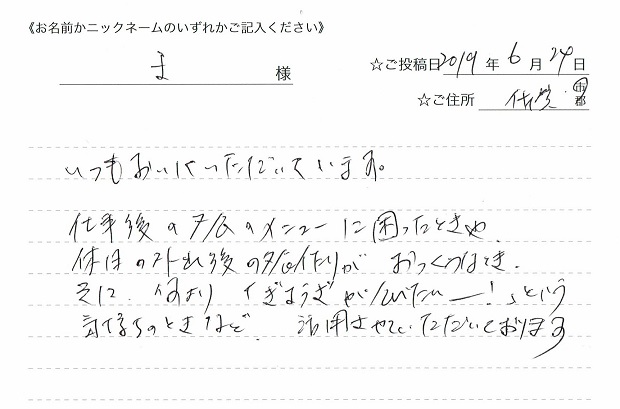 《お名前かニックネームのいずれかご記入ください》
ま 様
☆ご投稿日 2019 年 6 月 24 日
☆ご住所 佐賀 市 郡
いつもおいしくいただいています。
仕事後の夕食のメニューに困ったときや、
休日の外出後の夕食作りが おっくうなとき、
そして、何より「ぎょうざが食べたいー!」という
気持ちのときなど、 活用させていただいております